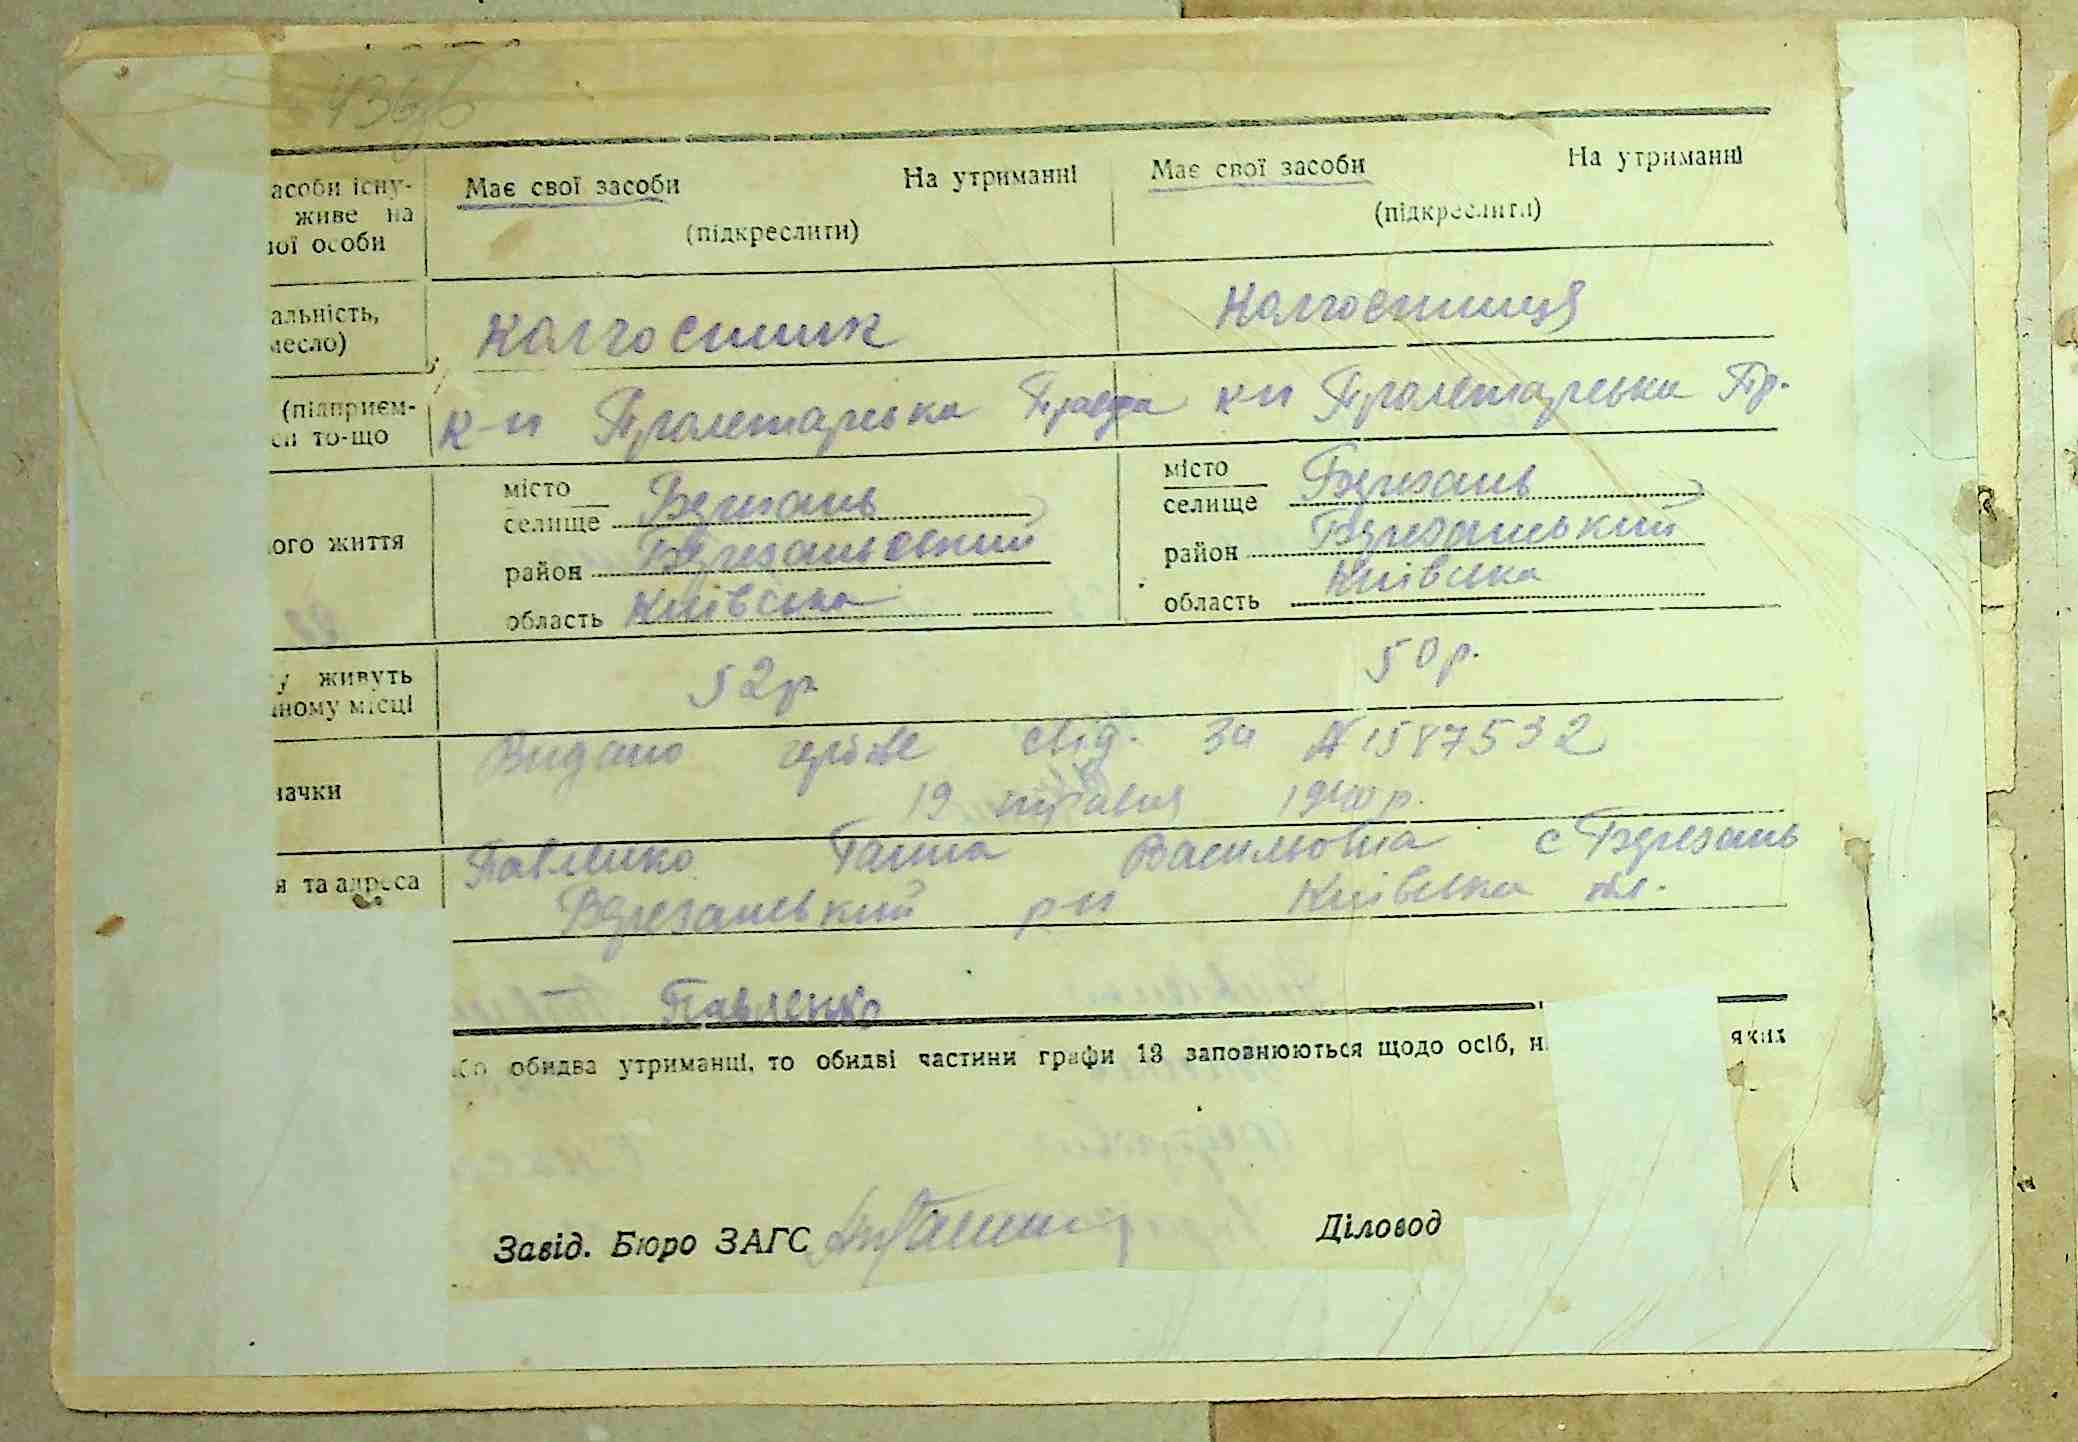 436
асоби існу- Має свої засоби На утриманні Має свої засоби На утриманні
живе на
ої особи (підкреслити) (підкреслити)
альність, Колгоспник Колгоспниця
месло)
(підприєм- к-п Пролетарська Правда к-п Пролетарська Пр.
си то-що
місто місто
селище Березань селище Березань
ого життя район Березанський район Березанський
область Київська область Київська
у живуть 52р 50р.
ному місці
Видано свід. за № 1587532
начки 19 травня 1940р.
Павленко Ганна Василівна с Березань
я та адреса
Березанський р-н Київська обл.
Павленко
бо обидва утриманці, то обидві частини графи 13 заповнюються щодо осіб, н яких
Завід. Бюро ЗАГС Діловод